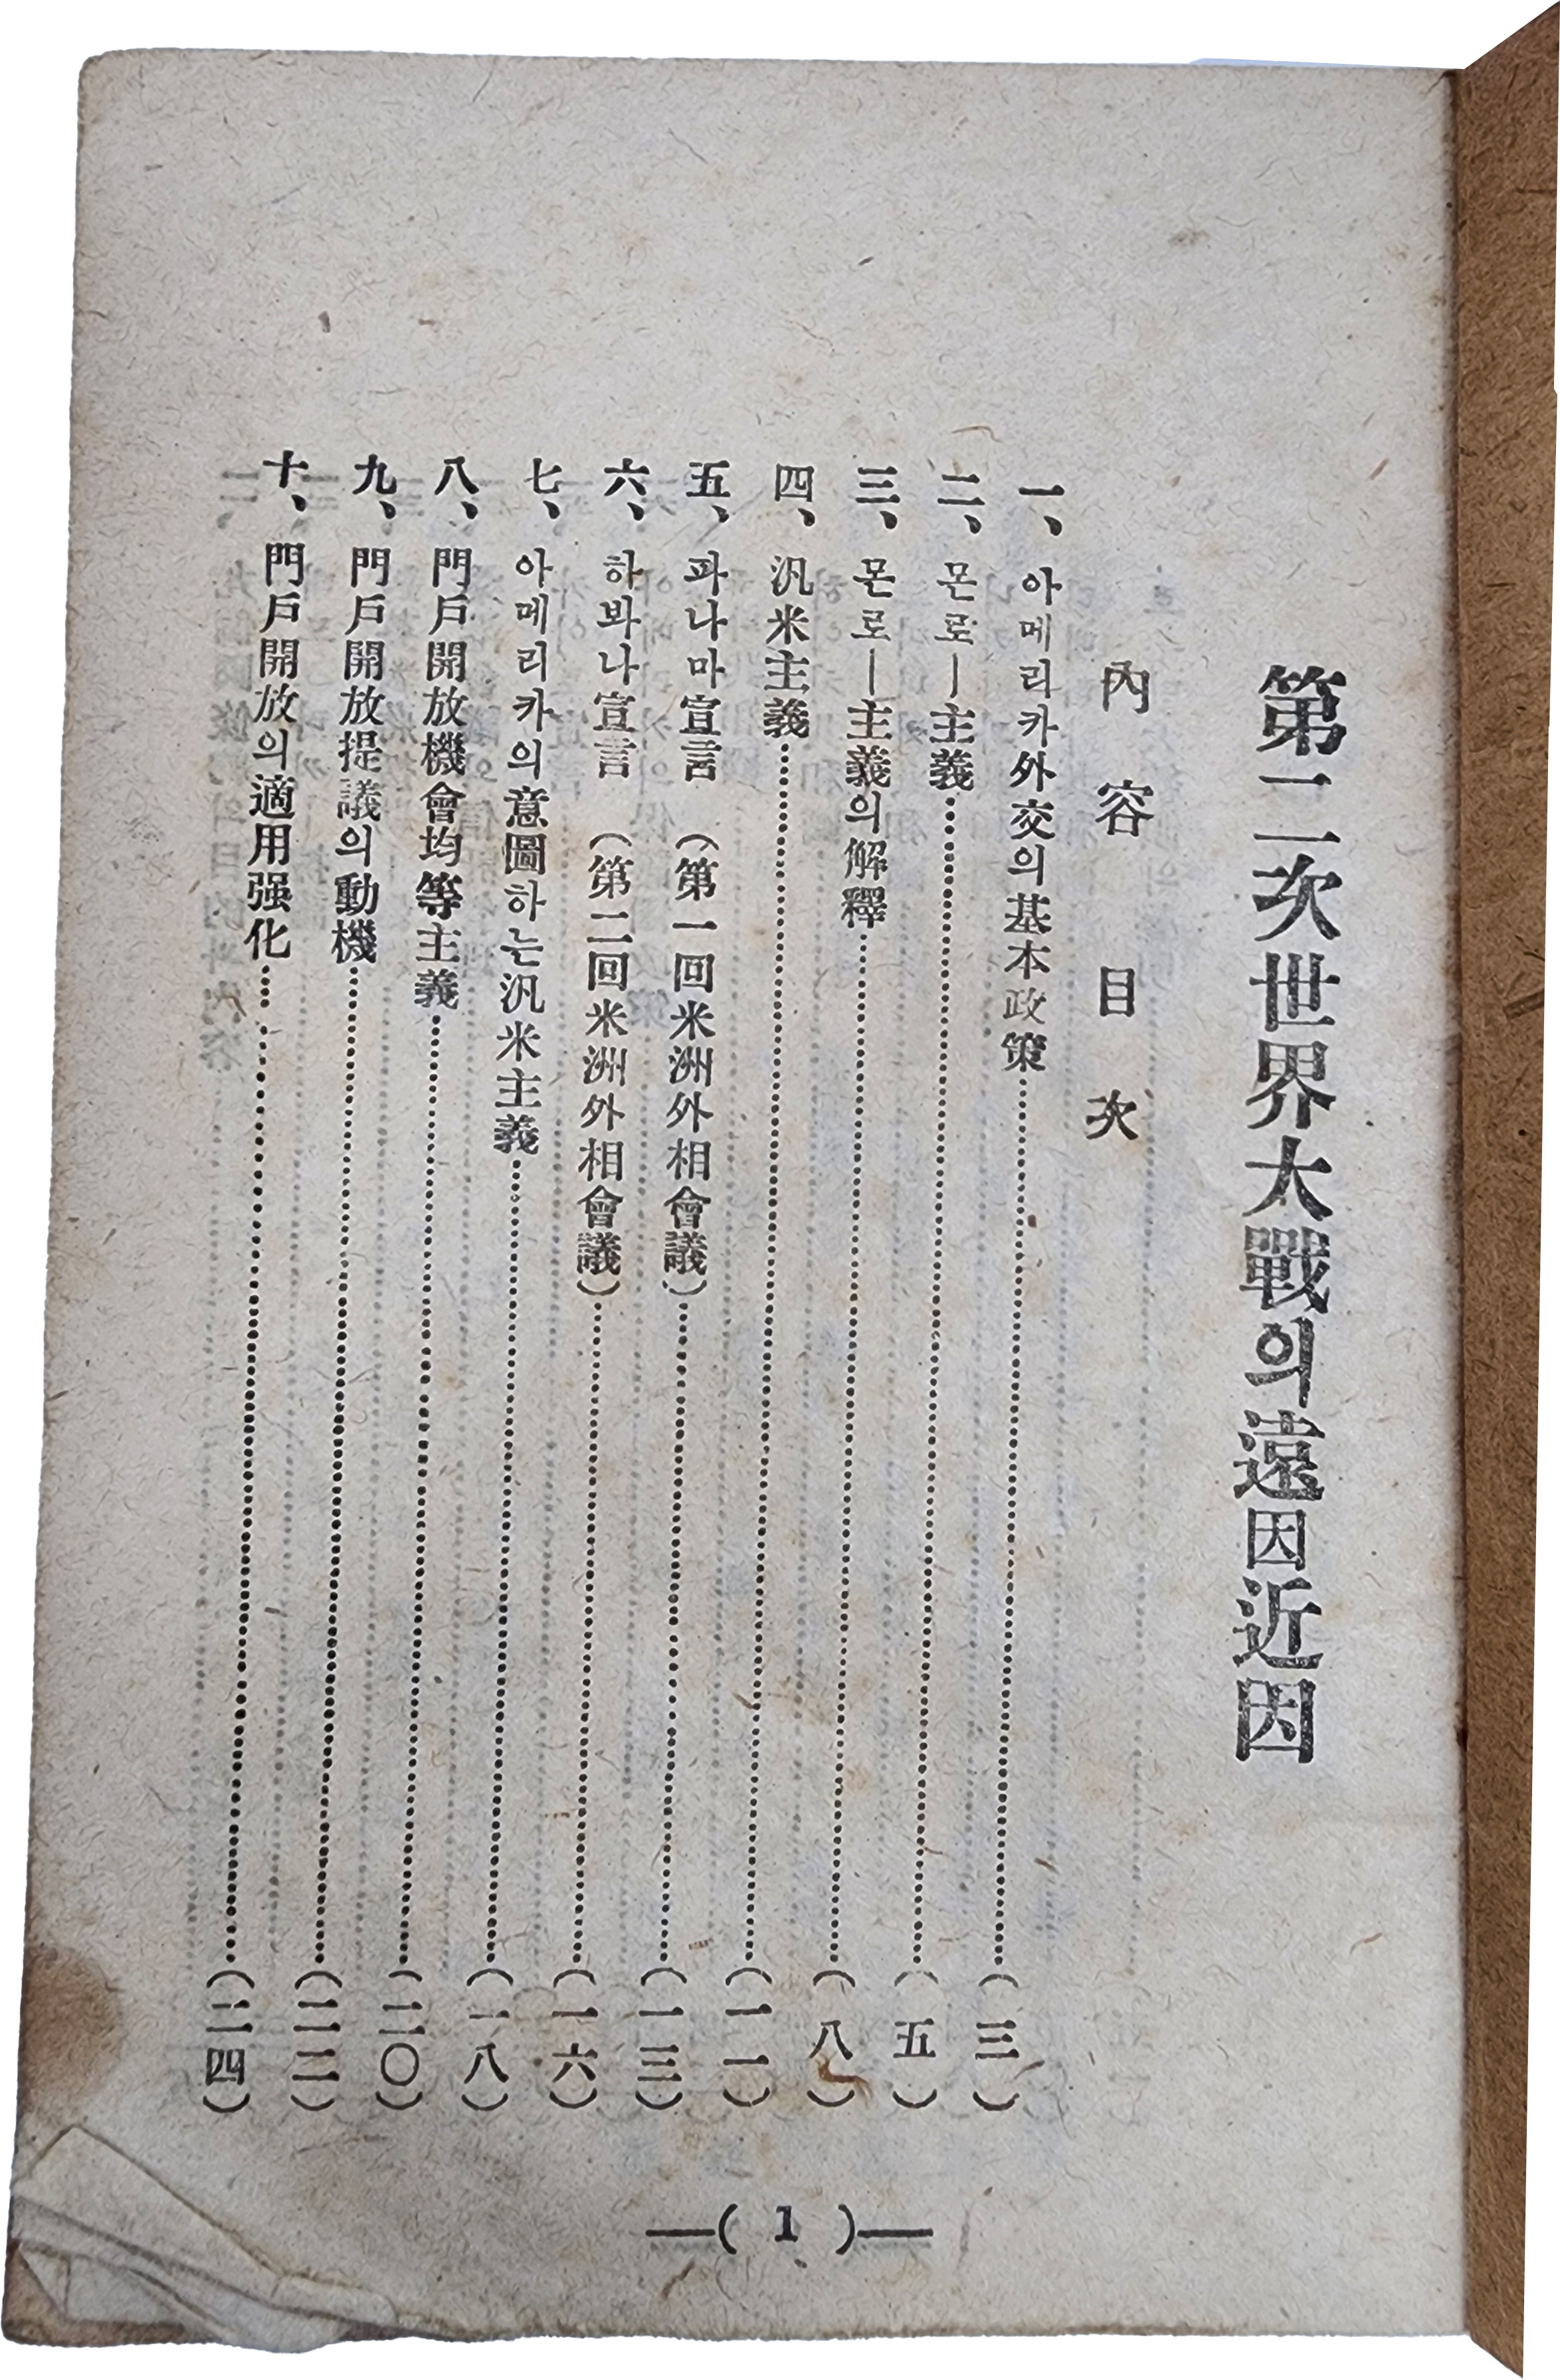 第二次世界大戰의遠因近因
內容目次
一、아메리카外交의基本政策……(三)
二、몬로ー主義……(五)
三、몬로ー主義의解釋……(八)
四、汎米主義……(一一)
五、파나마宣言 (第一回米洲外相會議)……(一三)
六、하봐나宣言 (第二回米洲外相會議)……(一六)
七、아메리카의意圖하는汎米主義……(一八)
八、門戶開放機會均等主義……(二〇)
九、門戶開放提議의動機……(二二)
十、門戶開放의適用强化……(二四)
—( 1 )—